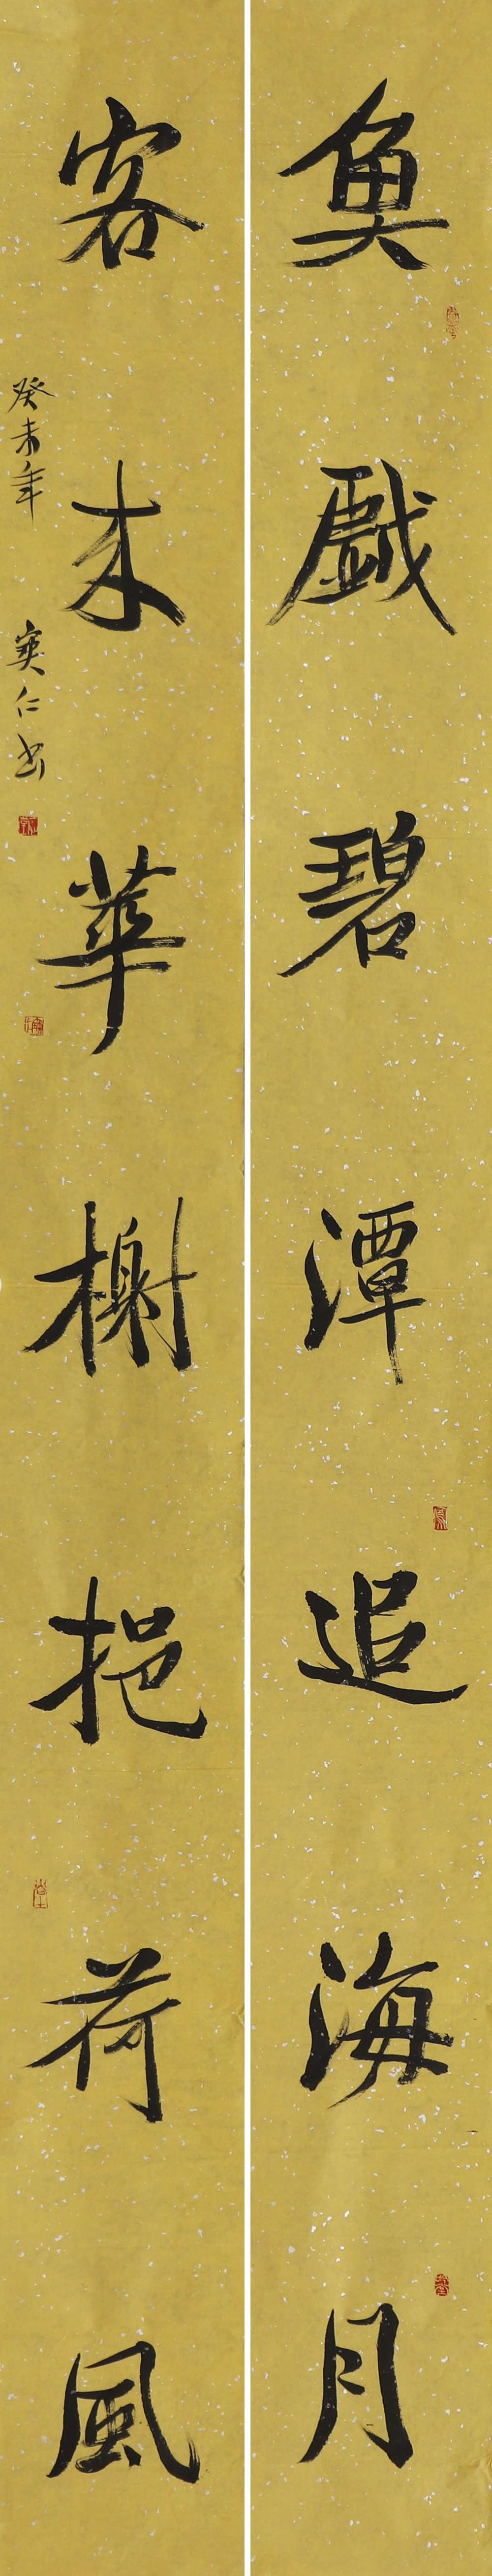 魚戲碧潭追海月
客来華榭挹荷風
癸未年
仁书